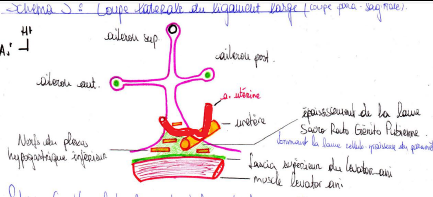 Schéma 5 : Coupe latérale du ligament large (coupe para-sagittale).
Ht
A
aileron sup.
aileron post.
aileron ant.
a. utérine
uretère
épaississement de la lame
Sacro Recto Génito Pubienne
formant la lame cellulo
Nerfs du plexus
hypogastrique inférieur
fascia supérieur du levator ani
muscle levator ani